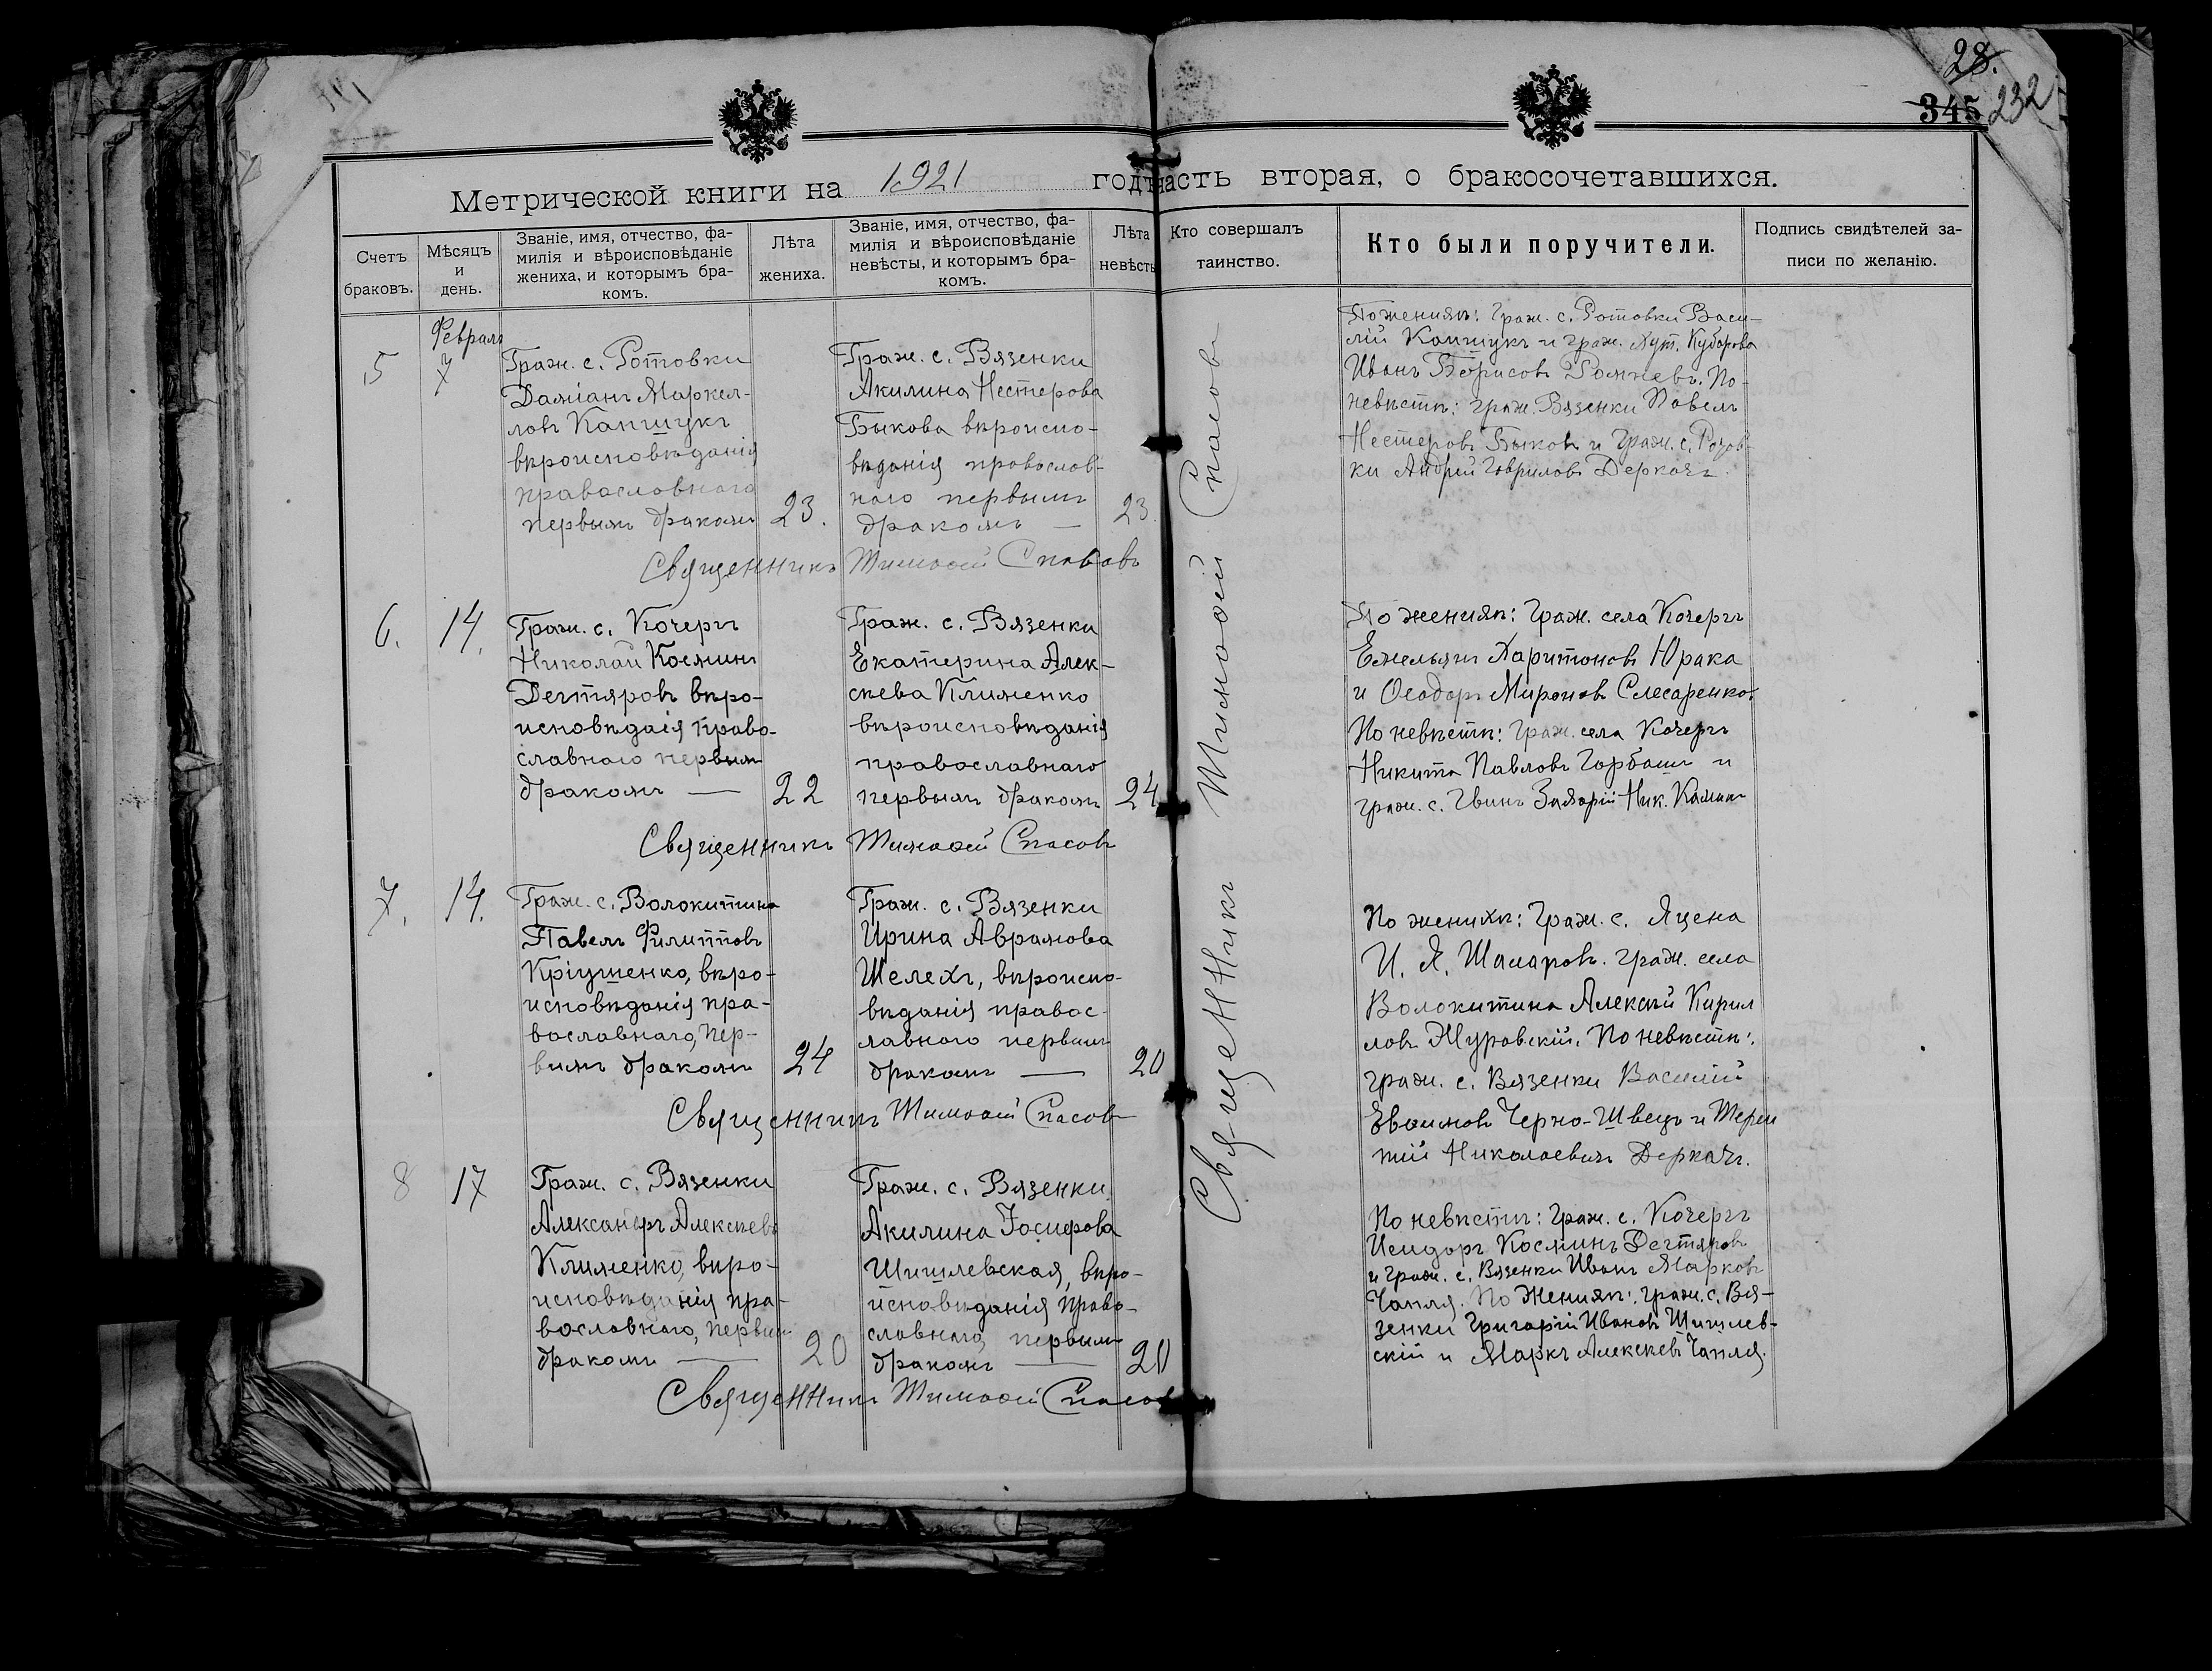 28.
345 232
Метрической книги на 1921 годъ
часть вторая, о бракосочетавшихся.
Счетъ браковъ.
Мѣсяцъ и день.
Званіе, имя, отчество, фа-
милія и вѣроисповѣданіе
жениха, и которымъ бра-
комъ.
Лѣта
жениха.
Званіе, имя, отчество, фа-
милія и вѣроисповѣданіе
невѣсты, и которымъ бра-
комъ.
Лѣта
невѣсты
Кто совершалъ
таинство.
Кто были поручители.
Подпись свидѣтелей за-
писи по желанію.
Февраль
5
7
Граж. с. Ротовки
Даміанъ Маркел-
ловъ Капшукъ
вѣроисповѣданія
православнаго
первымъ бракомъ
23.
Граж. с. Вязенки
Акилина Нестерова
Быкова вѣроиспо-
вѣданія православ-
наго первымъ
бракомъ —
23.
Священникъ Тимоѳей Спасовъ
По женихѣ: Граж. с. Ротовки Васи-
лій Капшукъ и граж. хут.
Иванъ Борисовъ По
невѣстѣ: граж. Вязенки Павелъ
Нестеровъ Быковъ и Граж. с.
ки Андрей Гавриловъ Деркачъ.
6.
14.
Граж. с. Кочергъ
Николай Косминъ
Дегтяровъ вѣро-
исповѣдаія право-
славнаго первым
бракомъ —
22
Граж. с. Вязенки
Екатерина Алек-
сѣева Клименко
вѣроисповѣданія
православнаго
первымъ бракомъ
24
Священникъ Тимоѳей Спасовъ
По женихѣ: Граж. села Кочергъ
Емельянъ Харитоновъ Юрака
и Ѳеодоръ Мироновъ Слесаренко.
По невѣстѣ: Граж. села Кочергъ
Никита Павловъ Горбашъ и
граж. с. Ник.
7.
14.
Граж. с. Волокитина
Павелъ Филипповъ
Кріушенко, вѣро-
исповѣданія пра-
вославнаго, пер-
вымъ бракомъ
24
Граж. с. Вязенки
Ирина Аврамова
Шелехъ, вѣроиспо-
вѣданія правос-
лавнаго первым
бракомъ —
20
Священникъ Тимоѳей Спасовъ
По женихѣ: Граж. с. Яцена
И. Я. Шамаровъ. граж. села
Волокитина Алексѣй Кирил
ловъ Журавскій. По невѣстѣ:
граж. с. Вязенки Василій
Черно-Швецъ и Терен
тій Николаевичъ Деркачъ.
8
17
Граж. с. Вязенки
Александръ Алексѣевъ
Клименко, вѣро-
исповѣданія пра-
вославнаго, первым
бракомъ —
20
Граж. с. Вязенки
Акилина Іосифова
Шишлевская, вѣро-
исповѣданія право-
славнаго, первым
бракомъ —
20
Священникъ Тимоѳей Спасов
По невѣстѣ: Граж. с. Кочергъ
Исидоръ Косминъ Дегтяровъ
и Граж. с. Вязенки Иванъ Марковъ
Чапля. По Женихѣ: граж. с. Вя-
зенки Григорій Ивановъ Шишлев-
скій и Маркъ Алексѣевъ Чапля.
Священникъ Тимоѳей Спасовъ